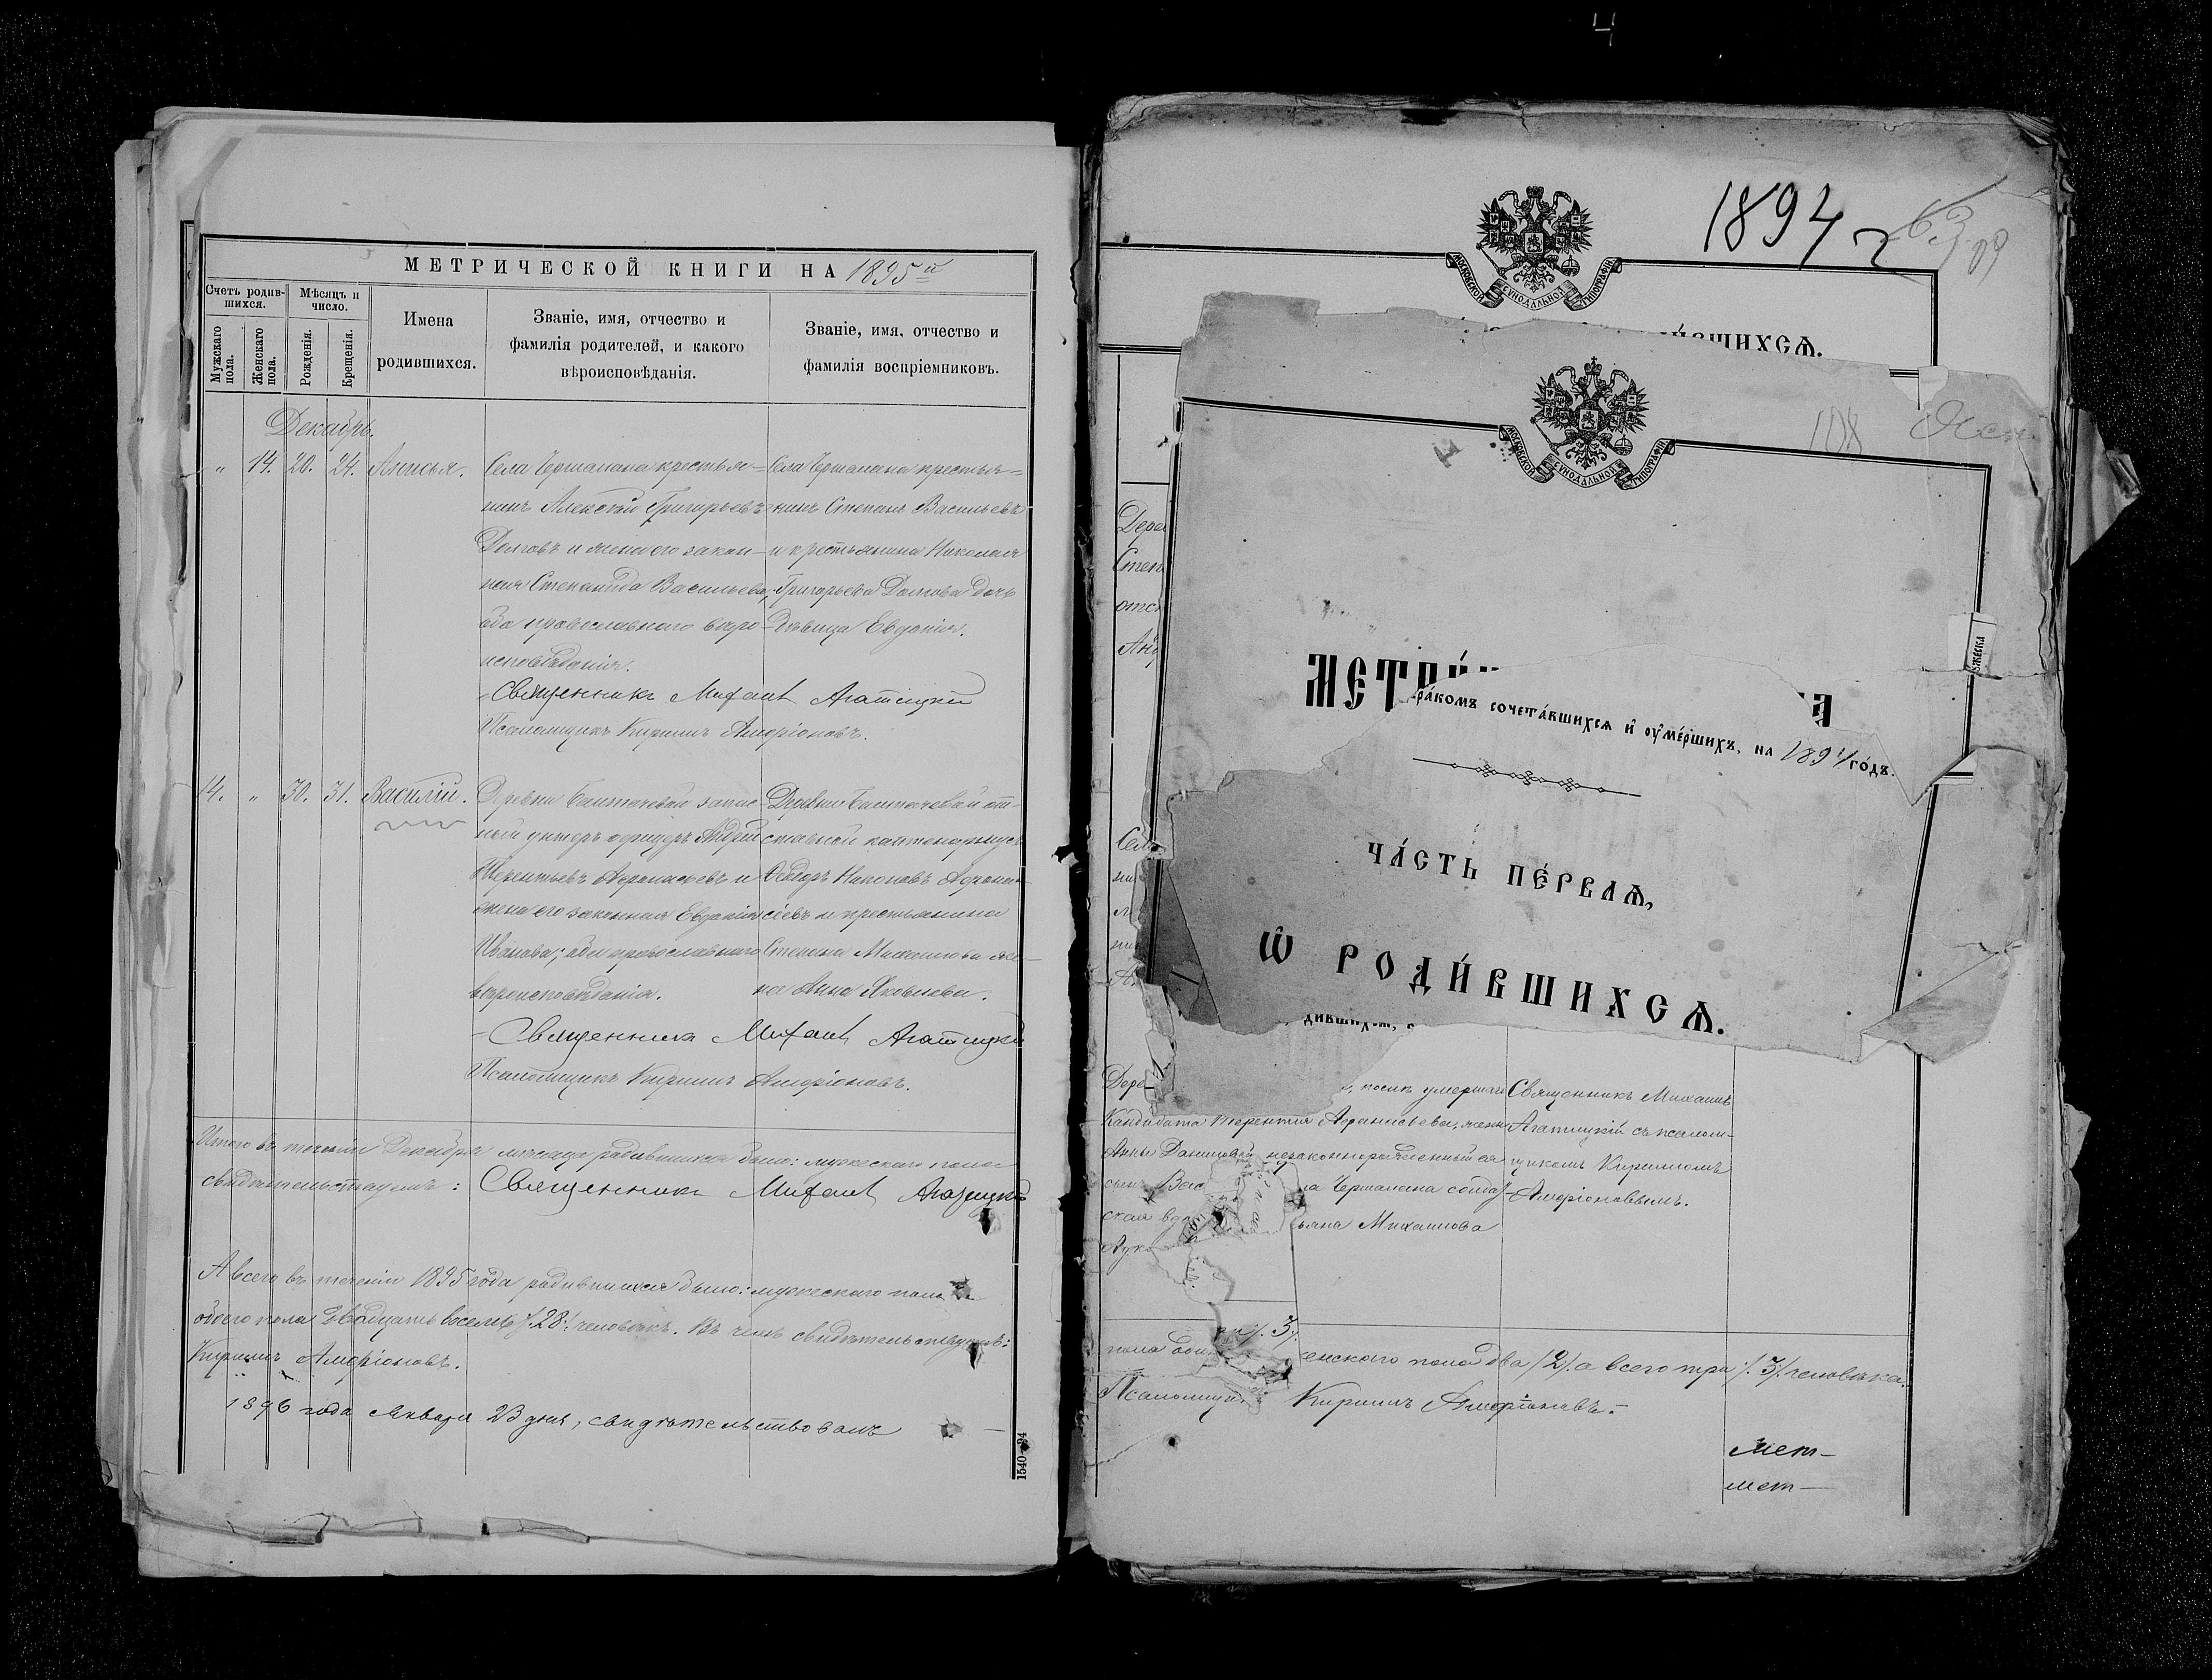 МЕТРИЧЕСКОЙ КНИГИ НА 1895 й
Счетъ родив-
шихся.
Мѣсяцъ и
число.
Мужскаго
пола.
Женскаго
пола.
Рожденія.
Крещенія.
Имена
родившихся.
Званіе, имя, отчество и
фамилія родителей, и какого
вѣроисповѣданія.
Званіе, имя, отчество и
фамилія воспріемниковъ.
Декабрь.
" 14. 20. 24. Анисья.
Села крестья-
нинъ Алексѣй Григорьевъ
Долговъ и жена его закон-
ная Степанида Васильева,
оба православнаго вѣро-
исповѣданія.
Села крестья-
нинъ Степанъ Васильевъ
и крестьянина Николая
Григорьева Долгова дочь
дѣвица Евдокія.
Священникъ Михаилъ Агатицкій
Псаломщикъ Кириллъ Аморіоновъ.
14. " 30. 31. Василій.
Деревни запас-
ный унтеръ офицеръ Андрей
Терентьевъ Аѳанасьевъ и
жена его законная Евдокія
Иванова; оба православнаго
вѣроисповѣданія.
Деревни от-
ставной каптенармусъ
Ѳедоръ Аѳанась-
евъ и крестьянина
Степана Михаилова же-
на Анна Яковлева.
Священникъ Михаилъ Агатицкій
Псаломщикъ Кириллъ Аморіоновъ.
Итого въ теченіи Декабря мѣсяца родившихся было: мужескаго пола
свидѣтельствуемъ: Священникъ Михаилъ Агатицкій
А всего въ теченіи 1895 года родившихся было: мужескаго пола
обоего пола двадцать восемь /.28./ человѣкъ. Въ чемъ свидѣтельствуемъ:
Кириллъ Аморіоновъ.
1896 года Января 23 дня, свидѣтельствовалъ
1540—94
1894
МОСКОВСКОЙ СѴНОДАЛЬНОЙ ТИПОГРАФІИ
ШИХСѦ.
МОСКОВСКОЙ СѴНОДАЛЬНОЙ ТИПОГРАФІИ
108
Дере
Степ
отст
МЕТРИ А
ра́комъ сочета́вшихсѧ и҆ ᲂу҆ме́ршихъ, на 1894 го́дъ.
ЧА́СТЬ ПЕ́РВАѦ,
Ѡ҆ РОДИ́ВШИХСѦ.
Дере послѣ умершаго
Кандидата Терентія Аѳанасьева, жены
Анны незаконнорожденный ея
сынъ Вас солдат-
ская Михаилова
Священникъ Михаилъ
Агатицкій съ псалом-
щикомъ Кирилломъ
Аморіоновымъ.
пола енскаго пола два /2/. а всего три /.3/. человѣка.
Псаломщикъ Кириллъ Аморіоновъ.
мет-
мет-